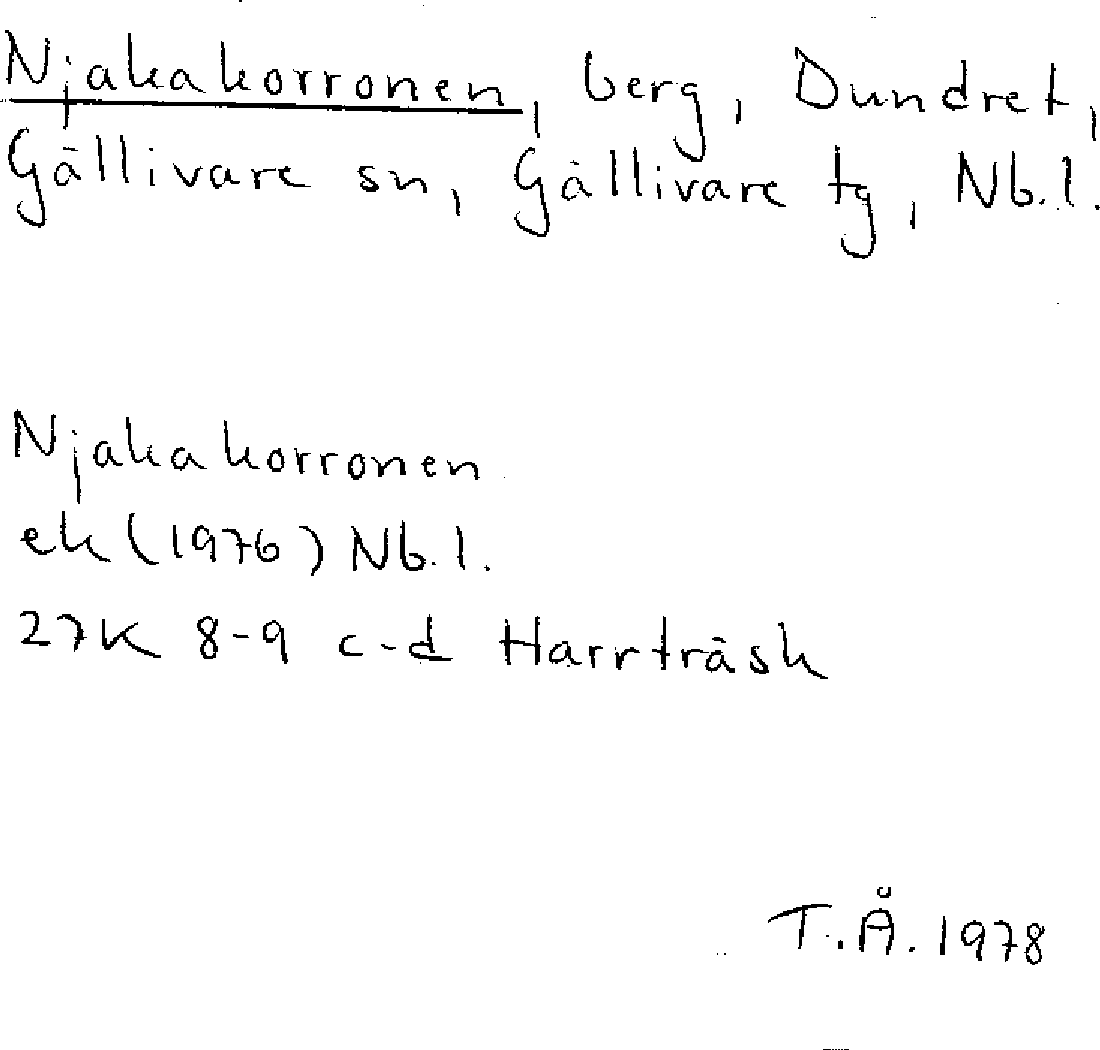 Njakakorronen, berg, Dundret,
Gällivare sn, Gällivare tg, Nb.l.
Njakakorronen
ek (1976) Nb.l.
27K 8-9 c-d Harrträsk
T.Å. 1978